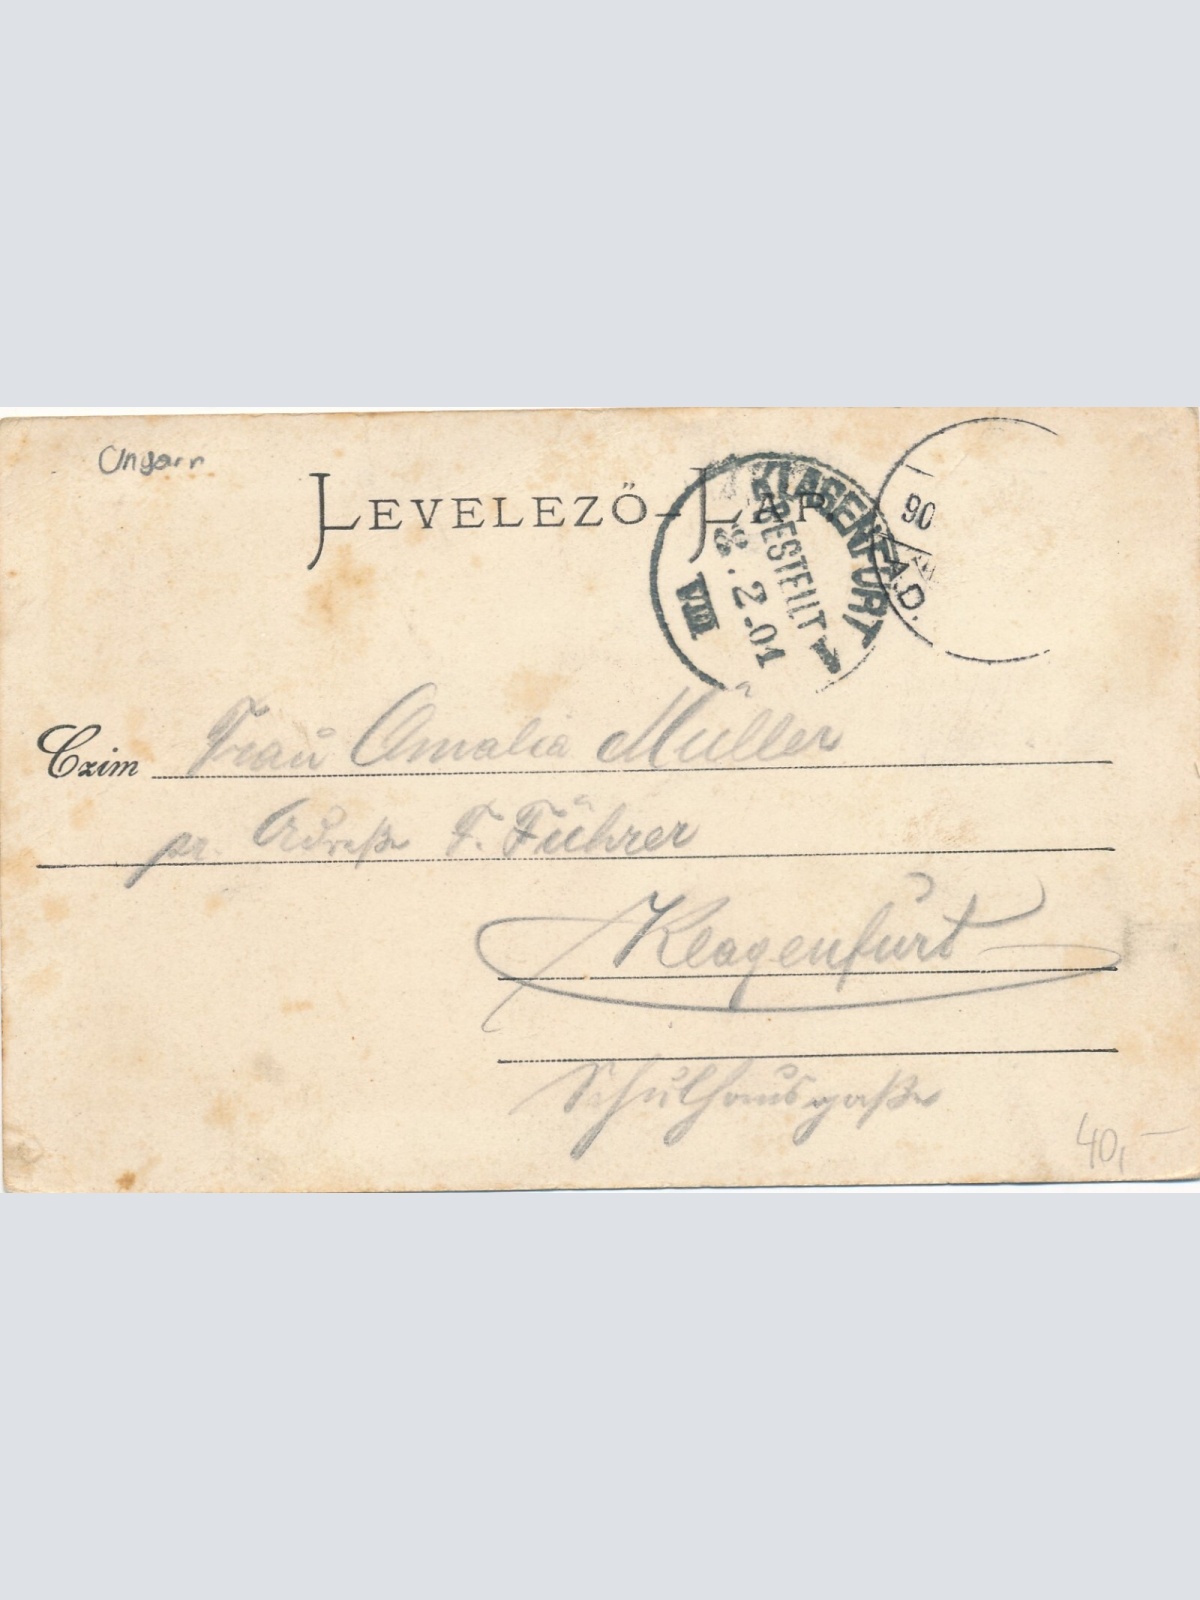 Ungarn
LEVELEZŐ-LAP.
KLAGENFURT
BESTELLT
8.2.01
VIII
90
A.D.
Czim Frau Amalia Müller
pr. Adreße F. Führer
Klagenfurt
Schulhausgaße
40,—